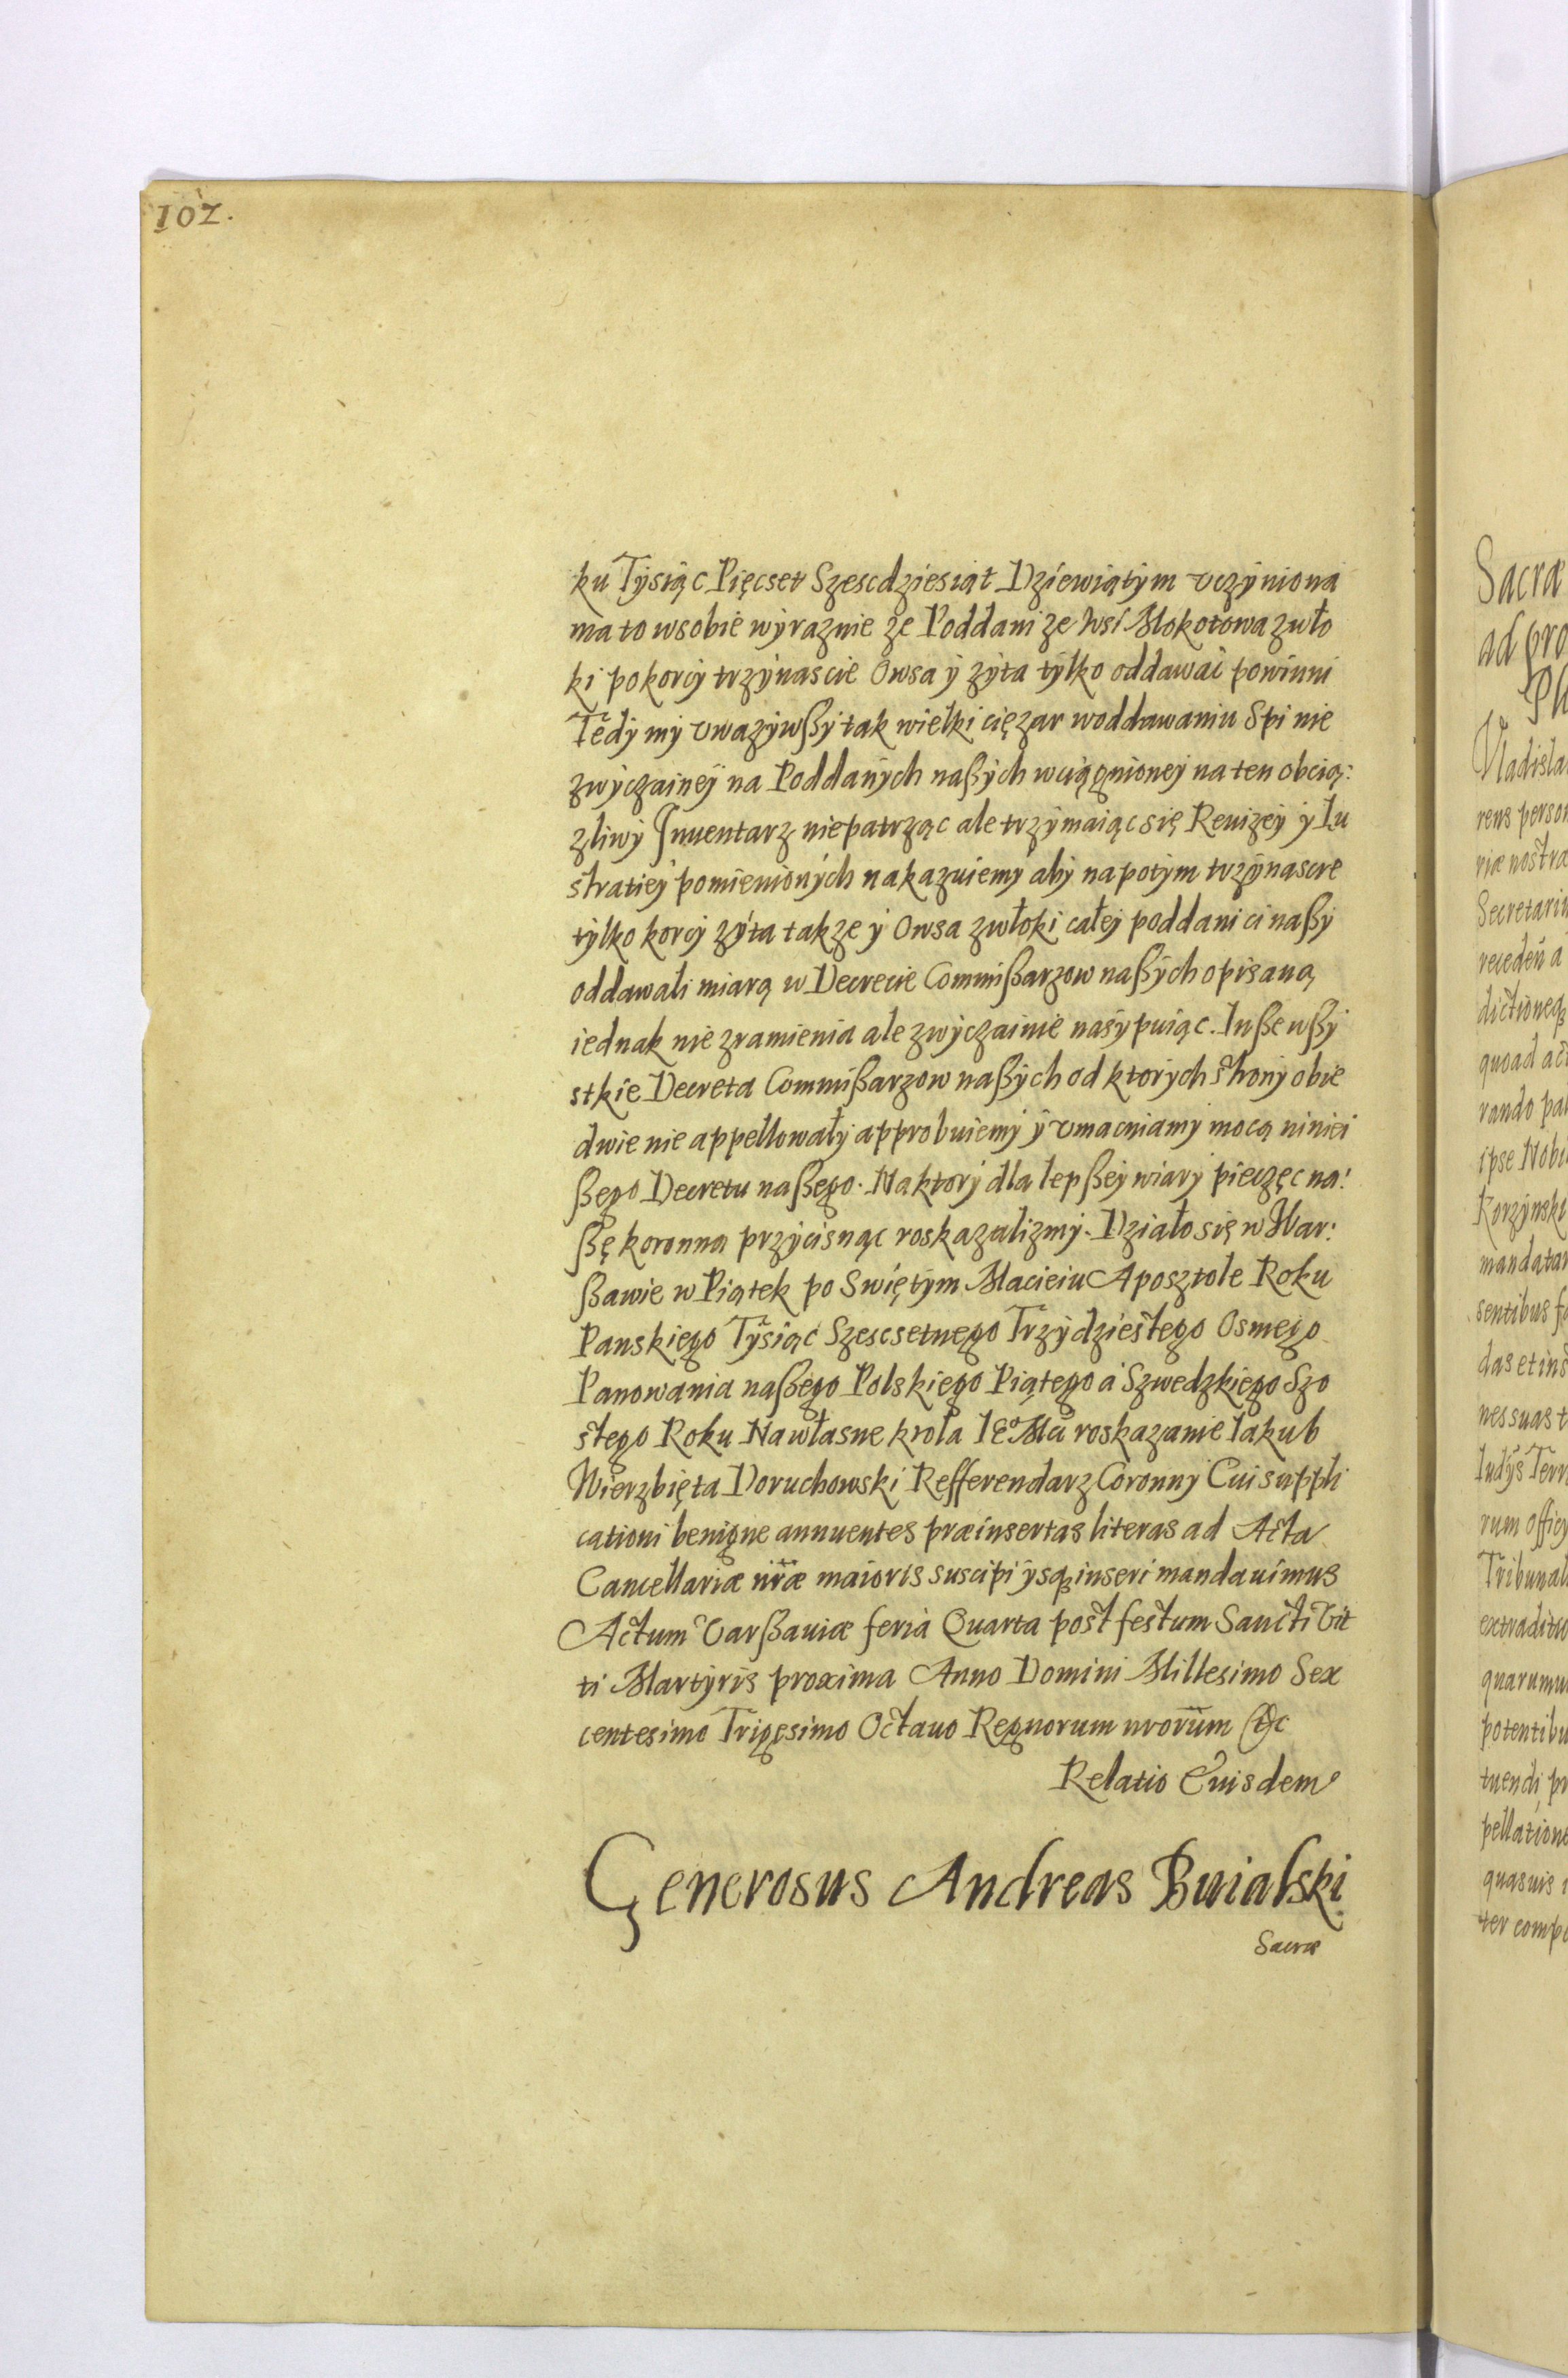 102.
ku Tysiąc Pięcset Szescdziesiąt Dziewiątym vczyniona
ma to wsobie wyraznie ze Poddani ze Wsi Mokotowa zwło
ki po korcy trzynascie Owsa y zyta tylko oddawać powinni
Tedy my vwazywßy tak wielki ciężar woddawaniu Spi nie
zwyczainey na Poddanych naßych wciągnioney na ten obcią:
zliwy Inuentarz niepatrząc ale trzymaiąc się Reuizey y Lu
stratiey pomienionych nakazuiemy aby napotym trzynascie
tylko korcy zyta takze y Owsa zwłoki całey poddani ci naßy
oddawali miarą w Decrecie Commißarzow naßych opisaną
iednak nie zramienia ale zwyczainie nasypuiąc. Inße wßy
stkie Decreta Commißarzow naßych od ktorych strony obie
dwie nie appellowały approbuiemy y vmacniamy mocą niniei
ßego Decretu naßego. Naktory dla lepßey wiary pieczęc na:
ßę koronną przycisnąc roskazalizmy. Działo się w War:
ßawie w Piątek po Swiętym Macieiu Aposztole Roku
Panskiego Tysiąc Szescsetnego Trzydziestego Osmego
Panowania naßego Polskiego Piątego a Szwedzkiego Szo
stego Roku Nawłasne krola IEo Mci roskazanie Iakub
Wierzbięta Doruchowski Refferendarz Coronny Cui suppli
cationi benigne annuentes præinsertas literas ad Acta
Cancellariæ nræ maioris suscipi ysq3 inseri mandauimus
Actum Varßauiæ feria Quarta post festum Sancti Vit
ti Martyris proxima Anno Domini Millesimo Sex
centesimo Trigesimo Octauo Regnorum nrorum &c
Relatio Euisdem
Generosus Andreas Buialski
Sacræ
Sacræ
ad pro
Vladisla
rens perso
riæ nostra
Secretari
receden a
dictioneq3
quoad act
rando pa
ipse Nobi
Korzynski
mandata
sentibus
das et ins
nes suas t
ludys Terr
rum officy
Tribunal
extraditio
quarumu
potentibu
tuendi, pr
pellatione
quasuis
ter comp